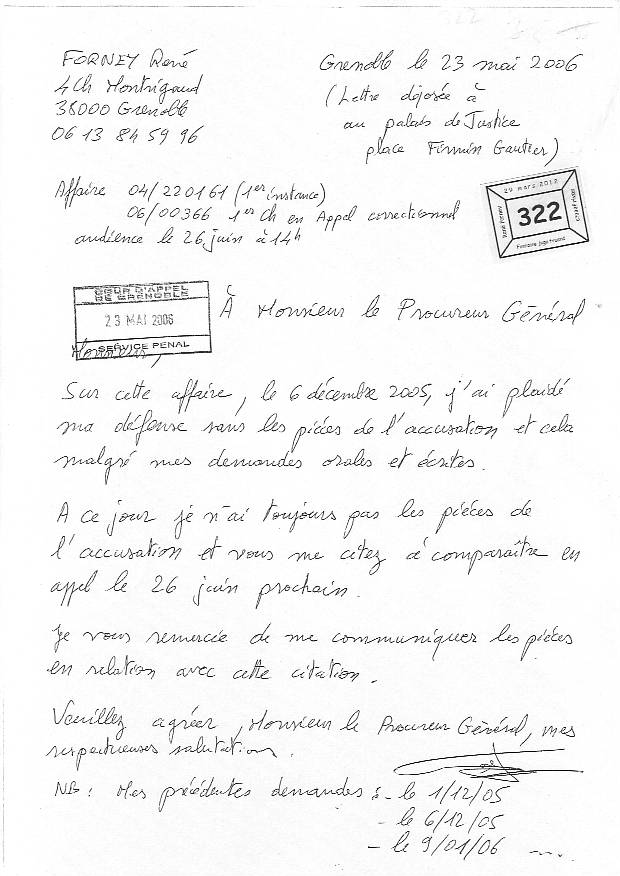 FORNEY René
4 Ch Montrigaud
38000 Grenoble
06 13 84 59 96
Grenoble le 23 mai 2006
(Lettre déposée à
au palais de Justice
place Firmin Gautier)
Affaire 04/220161 (1er instance)
06/00366 1er Ch en Appel correctionnel
audience le 26 juin à 14h
29 mars 2012
René Forney
322
Firminoire juge truand
COUR D'APPEL
DE GRENOBLE
23 MAI 2006
SERVICE PENAL
À Monsieur le Procureur Général
Monsieur,
Sur cette affaire, le 6 décembre 2005, j'ai plaidé
ma défense sans les pièces de l'accusation et cela
malgré mes demandes orales et écrites.
A ce jour je n'ai toujours pas les pièces de
l'accusation et vous me citez à comparaître en
appel le 26 juin prochain.
Je vous remercie de me communiquer les pièces
en relation avec cette citation.
Veuillez agréer, Monsieur le Procureur Général, mes
respectueuses salutations.
NB : Mes précédentes demandes : - le 1/12/05
- le 6/12/05
- le 9/01/06 ....